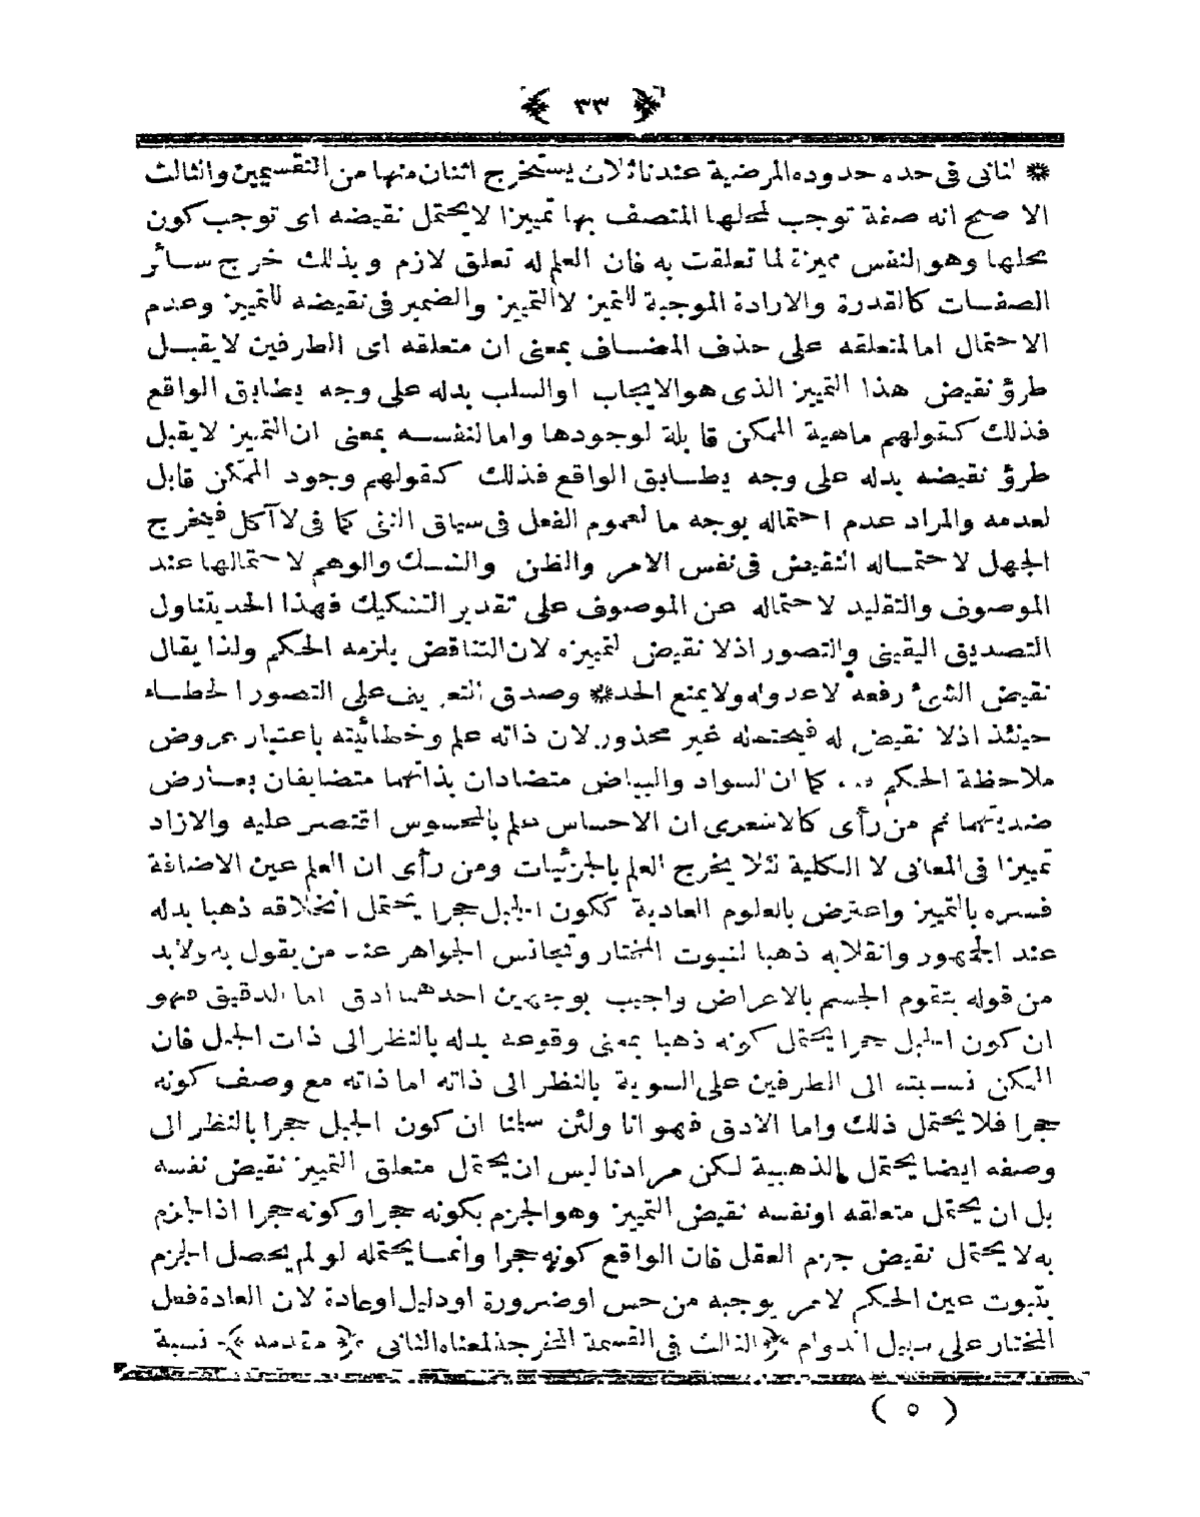 ﴿ ٣٣ ﴾
* الثانى فى حده حدوده المرضية عندنا ثلاث يستخرج اثنان منها من التقسيمين والثالث
الاصح انه صفة توجب لمحلها المتصف بها تمييزا لايحتمل نقيضه اى توجب كون
محلها وهو النفس مميزة لما تعلقت به فان العلم له تعلق لازم وبذلك خرج سائر
الصفات كالقدرة والارادة الموجبة للتميز لاالتمييز والضمير فى نقيضه للتمييز وعدم
الاحتمال اما لمتعلقه على حذف المضاف بمعنى ان متعلقه اى الطرفين لايقبل
طرؤ نقيض هذا التمييز الذى هو الايجاب او السلب بدله على وجه يطابق الواقع
فذلك كقولهم ماهية الممكن قابلة لوجودها واما لنفسه بمعنى ان التمييز لايقبل
طرؤ نقيضه بدله على وجه يطابق الواقع فذلك كقولهم وجود الممكن قابل
لعدمه والمراد عدم احتماله بوجه ما لعموم الفعل فى سياق النفى كما فى لاآكل فيخرج
الجهل لاحتماله النقيض فى نفس الامر والظن والشك والوهم لاحتمالها عند
الموصوف والتقليد لاحتماله عن الموصوف على تقدير التشكيك فهذا الحد يتناول
التصديق اليقينى والتصور اذلا نقيض لتمييزه لان التناقض يلزمه الحكم ولذا يقال
نقيض الشئ رفعه لاعدوله ولايمنع الحد * وصدق التعريف على التصور الخطاء
حينئذ اذلا نقيض له فيحتمله غير محذور لان ذاته علم وخطائيته باعتبار عروض
ملاحظة الحكم كما ان السواد والبياض متضادان بذاتهما متضايفان بعارض
ضديتهما ثم من رأى كالاشعرى ان الاحساس علم بالمحسوس اقتصر عليه والازاد
تمييزا فى المعانى لا الكلية لئلا يخرج العلم بالجزئيات ومن رأى ان العلم عين الاضافة
فسره بالتمييز واعترض بالعلوم العادية ككون الجبل حجرا يحتمل انخلاقه ذهبا بدله
عند الجمهور وانقلابه ذهبا لثبوت المختار وتجانس الجواهر عند من يقول به ولابد
من قوله بتقوم الجسم بالاعراض واجيب بوجهين احدهما ادق اما الدقيق فهو
ان كون الجبل حجرا يحتمل كونه ذهبا بمعنى وقوعه بدله بالنظر الى ذات الجبل فان
الممكن نسبته الى الطرفين على السوية بالنظر الى ذاته اما ذاته مع وصف كونه
حجرا فلا يحتمل ذلك واما الادق فهو انا ولئن سلمنا ان كون الجبل حجرا بالنظر الى
وصفه ايضا يحتمل الذهبية لكن مرادنا ليس ان يحتمل متعلق التمييز نقيض نفسه
بل ان يحتمل متعلقه او نفسه نقيض التمييز وهو الجزم بكونه حجرا وكونه حجرا اذا جزم
به لا يحتمل نقيض جزم العقل فان الواقع كونه حجرا وانما يحتمله لو لم يحصل الجزم
بثبوت عين الحكم لامر يوجبه من حس او ضرورة او دليل او عادة لان العادة فعل
المختار على سبيل الدوام ﴿ الثالث فى القسمة المخرجة لمعناه الثانى ﴾ ﴿ مقدمه ﴾ نسبة
( ٥ )